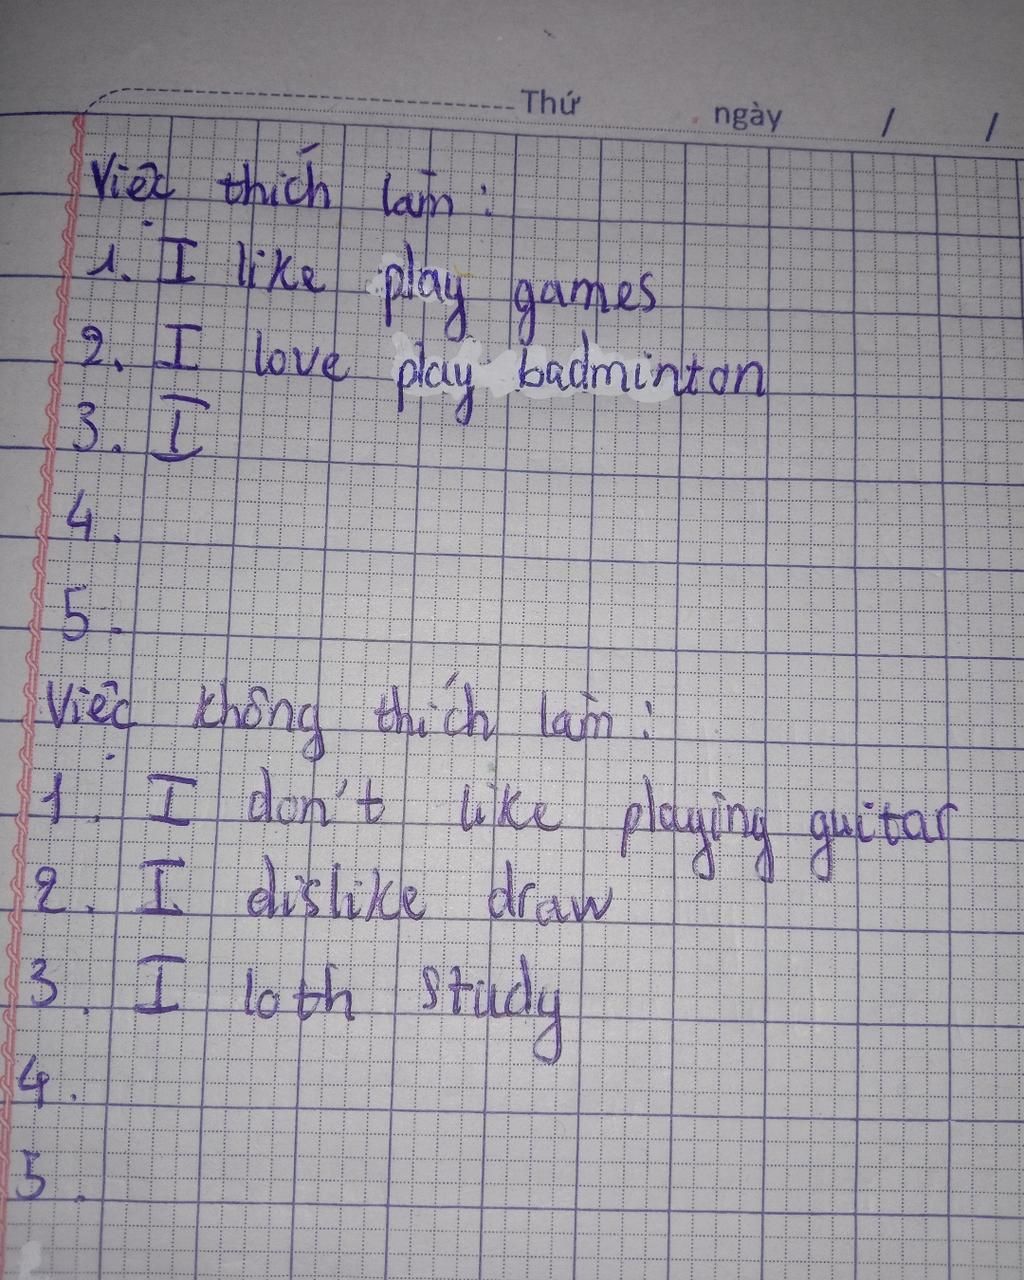 Thứ ngày / /
Việc thích làm :
1. I like play games
2. I love play badminton
3. I
4.
5.
Việc không thích làm :
1. I don't like playing guitar
2. I dislike draw
3. I loth study
4.
5.